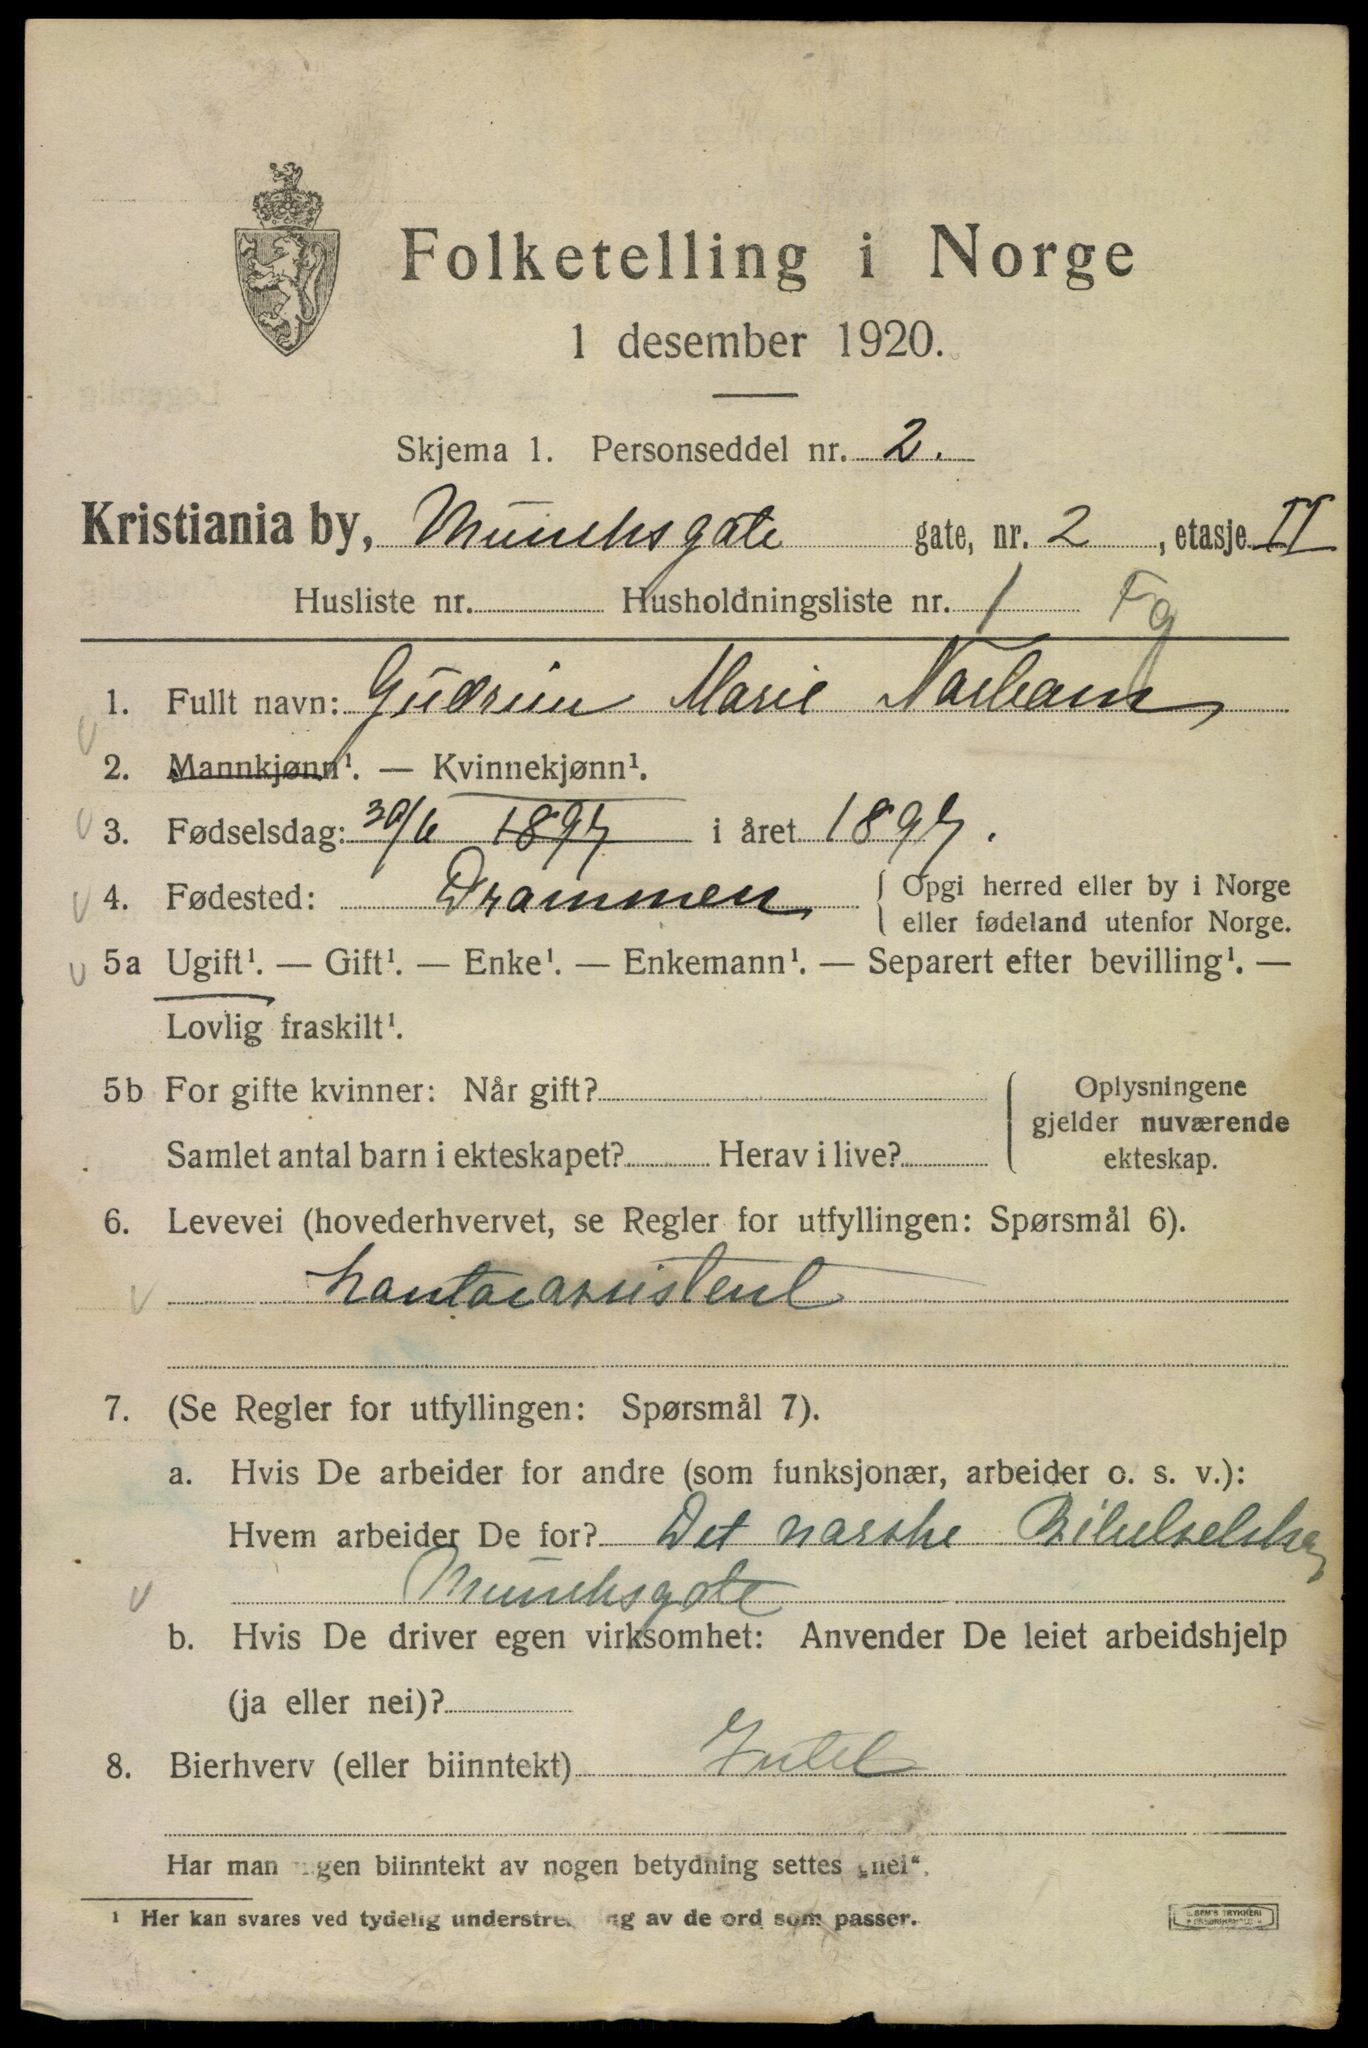 Folketelling i Norge
1 desember 1920.
Skjema 1. Personseddel nr. 2.
Kristiania by, Munchsgate gate, nr. 2, etasje II
Husliste nr. Husholdningsliste nr. 1 Fg
1. Fullt navn: Gudrun Marie
2. Mannkjønn¹. — Kvinnekjønn¹.
3. Fødselsdag: 30/6 1897 i året 1897.
4. Fødested: Drammen { Opgi herred eller by i Norge
eller fødeland utenfor Norge.
5a Ugift¹. — Gift¹. — Enke¹. — Enkemann¹. — Separert efter bevilling¹. —
Lovlig fraskilt¹.
5b For gifte kvinner: Når gift? Oplysningene
gjelder nuværende
Samlet antal barn i ekteskapet? Herav i live? ekteskap.
6. Levevei (hovederhvervet, se Regler for utfyllingen: Spørsmål 6).
kontorassistent
7. (Se Regler for utfyllingen: Spørsmål 7).
a. Hvis De arbeider for andre (som funksjonær, arbeider o. s. v.):
Hvem arbeider De for? Det norske Bibelselskap
Munchsgate
b. Hvis De driver egen virksomhet: Anvender De leiet arbeidshjelp
(ja eller nei)?
8. Bierhverv (eller biinntekt) Intet
Har man ingen biinntekt av nogen betydning settes „nei“.
¹ Her kan svares ved tydelig understrekning av de ord som passer.